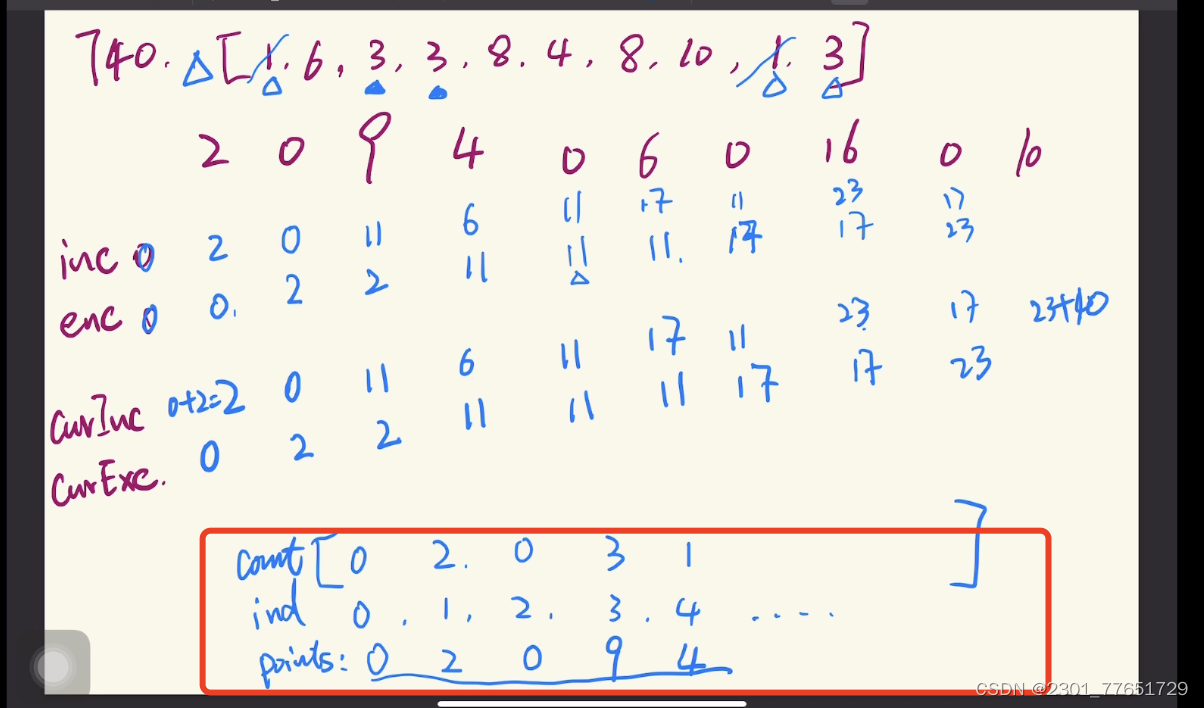 740. △ [1, 6, 3, 3, 8, 4, 8, 10, 1, 3]
2 0 9 4 0 6 0 16 0 10
6 11 17 11 23 17
inc 0 2 0 11
11 11 11. 17 17 23
enc 0 0. 2 2
23 17 23+10
curInc 0+2=2 0 11 6 11 17 11
curExc. 0 2 2 11 11 11 17 17 23
count [ 0 2. 0 3 1 ]
ind 0 . 1, 2, 3 . 4 .....
points: 0 2 0 9 4
CSDN @2301_77651729